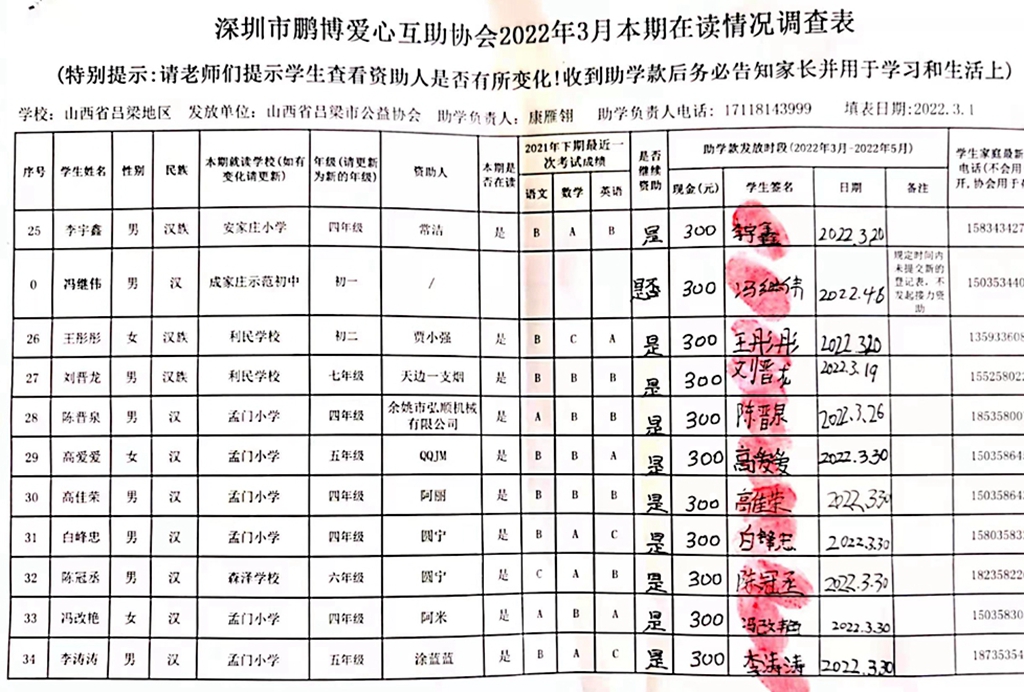 深圳市鹏博爱心互助协会2022年3月本期在读情况调查表
(特别提示:请老师们提示学生查看资助人是否有所变化!收到助学款后务必告知家长并用于学习和生活上)
学校: 山西省吕梁地区 发放单位: 山西省吕梁市公益协会 助学负责人: 康雁翎 助学负责人电话: 17118143999 填表日期:2022.3.1
序号 学生姓名 性别 民族 本期就读学校(如有变化请更新) 年级(请更新为新的年级) 资助人 本期是否在读 2021年下期最近一次考试成绩 是否继续资助 助学款发放时段(2022年3月-2022年5月) 学生家庭最新电话(不会用开,协会用于
语文 数学 英语 现金(元) 学生签名 日期 备注
25 李宇鑫 男 汉族 安家庄小学 四年级 常洁 是 B A B 是 300 李宇鑫 2022.3.20 158343427
0 冯继伟 男 汉 成家庄示范初中 初一 / 300 冯继伟 2022.4.6 规定时间内未提交新的登记表,不发起接力资助 150353440
26 王彤彤 女 汉族 利民学校 初二 贾小强 是 B C A 是 300 王彤彤 2022.3.20 135933608
27 刘晋龙 男 汉族 利民学校 七年级 天边一支烟 是 B B B 是 300 刘晋龙 2022.3.19 155258022
28 陈晋泉 男 汉 孟门小学 四年级 余姚市弘顺机械有限公司 是 A B B 是 300 陈晋泉 2022.3.26 185358007
29 高爱爱 女 汉 孟门小学 五年级 QQJM 是 B B A 是 300 高爱爱 2022.3.30 150358645
30 高佳荣 男 汉 孟门小学 四年级 阿丽 是 B B B 是 300 高佳荣 2022.3.30 150358642
31 白峰忠 男 汉 孟门小学 四年级 圆宁 是 B A C 是 300 白峰忠 2022.3.30 158035832
32 陈冠丞 男 汉 森泽学校 六年级 圆宁 是 C A B 是 300 陈冠丞 2022.3.30 182358220
33 冯改艳 女 汉 孟门小学 四年级 阿米 是 A B A 是 300 冯改艳 2022.3.30 150358301
34 李涛涛 男 汉 孟门小学 五年级 涂蓝蓝 是 B A C 是 300 李涛涛 2022.3.30 18735354